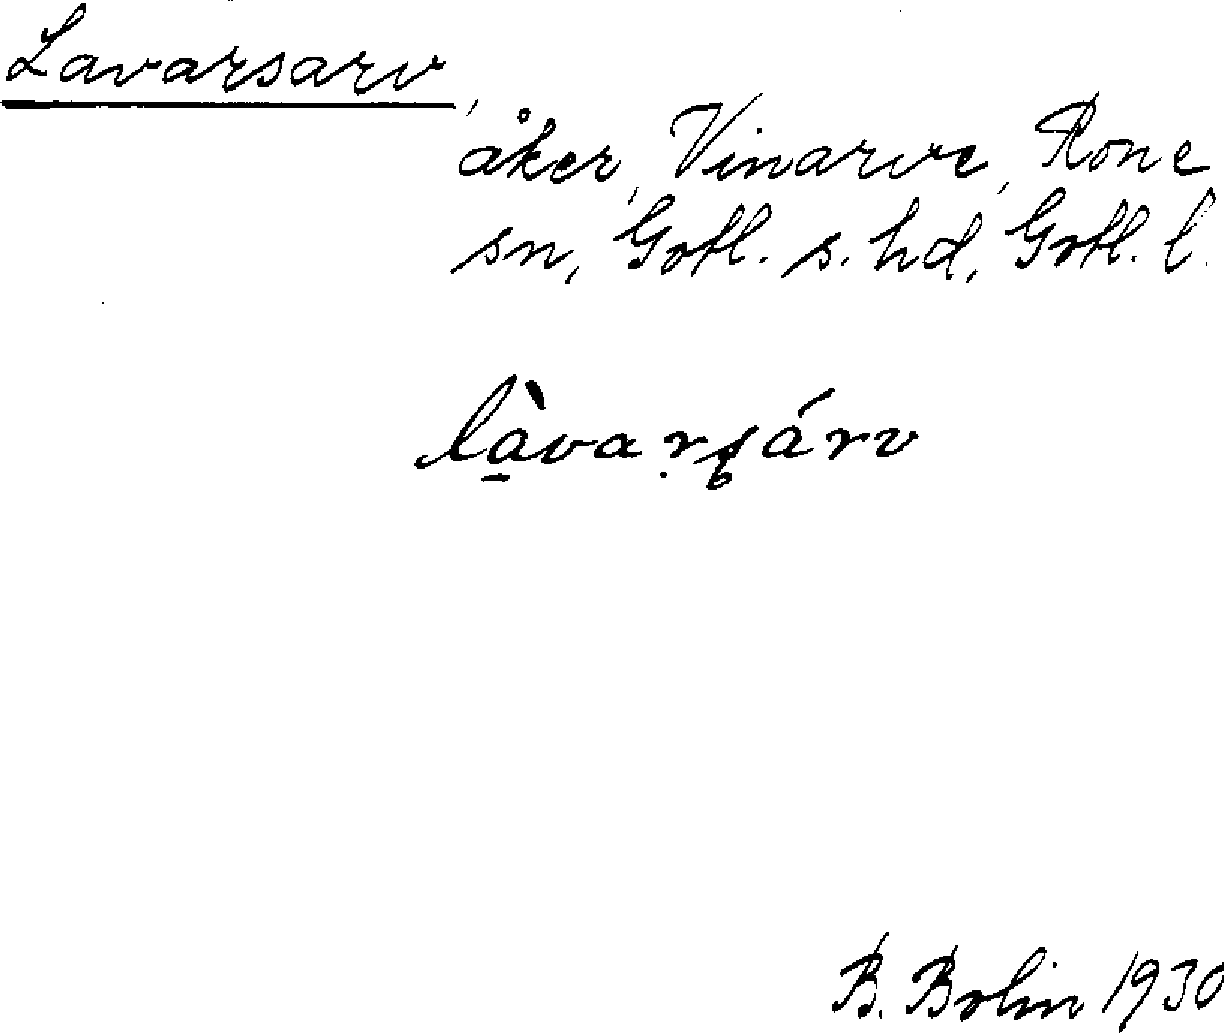 Lavarsarv,
åker, Vinarve, Rone
sn, Gotl. s. hd, Gotl. l.
là̱vaṛʂárv
B. Bolin 1930